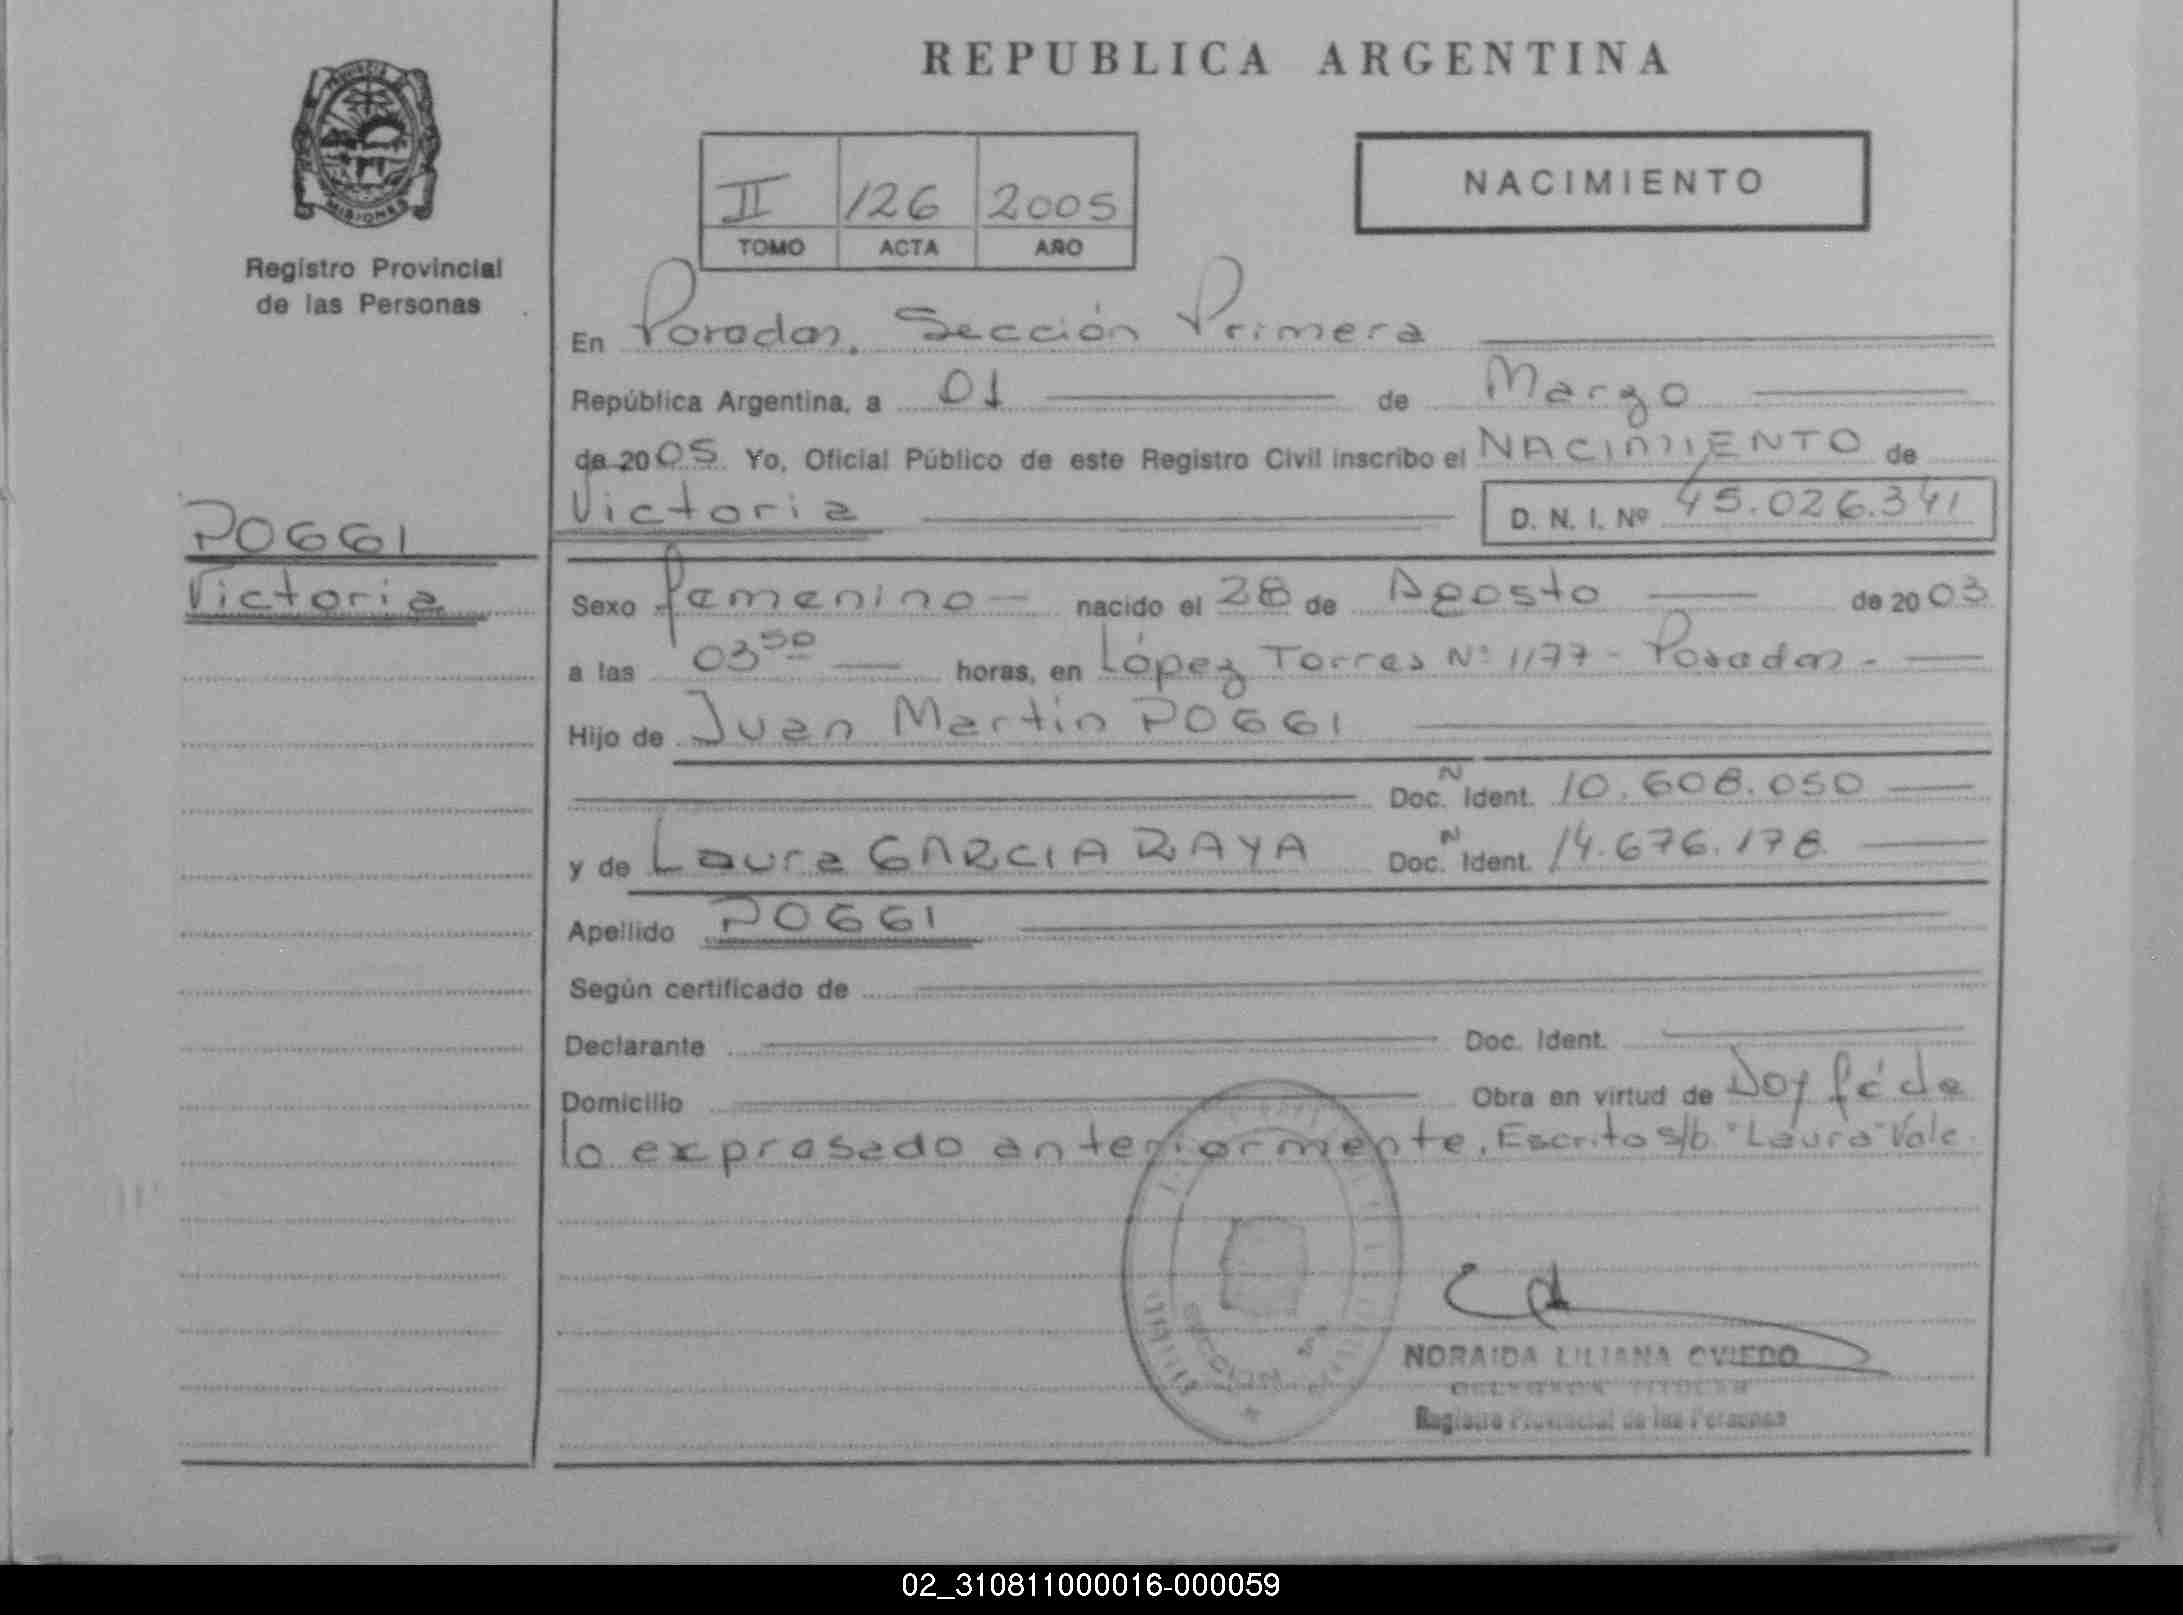 REPUBLICA ARGENTINA
PROVINCIA DE
MISIONES
Registro Provincial
de las Personas
II 126 2005
TOMO ACTA AÑO
NACIMIENTO
En Posadas, Sección Primera
República Argentina, a 01 de Marzo
de 2005 Yo, Oficial Público de este Registro Civil inscribo el NACIMIENTO de
Victoria D. N. I. Nº 45.026.341
POGGI
Victoria
Sexo femenino nacido el 28 de Agosto de 2003
a las 03 50 horas, en López Torres Nº 1177 - Posadas -
Hijo de Juan Martin POGGI
Doc. N Ident. 10.608.050
y de Laura GARCIA RAYA Doc. N Ident. 14.676.178
Apellido POGGI
Según certificado de
Declarante Doc. Ident.
Domicilio Obra en virtud de Doy fé de
lo expresado anteriormente. Escrito s/b "Laura" Vale.
SECCION
NORAIDA LILIANA OVIEDO
Registro Provincial de las Personas
02_310811000016-000059